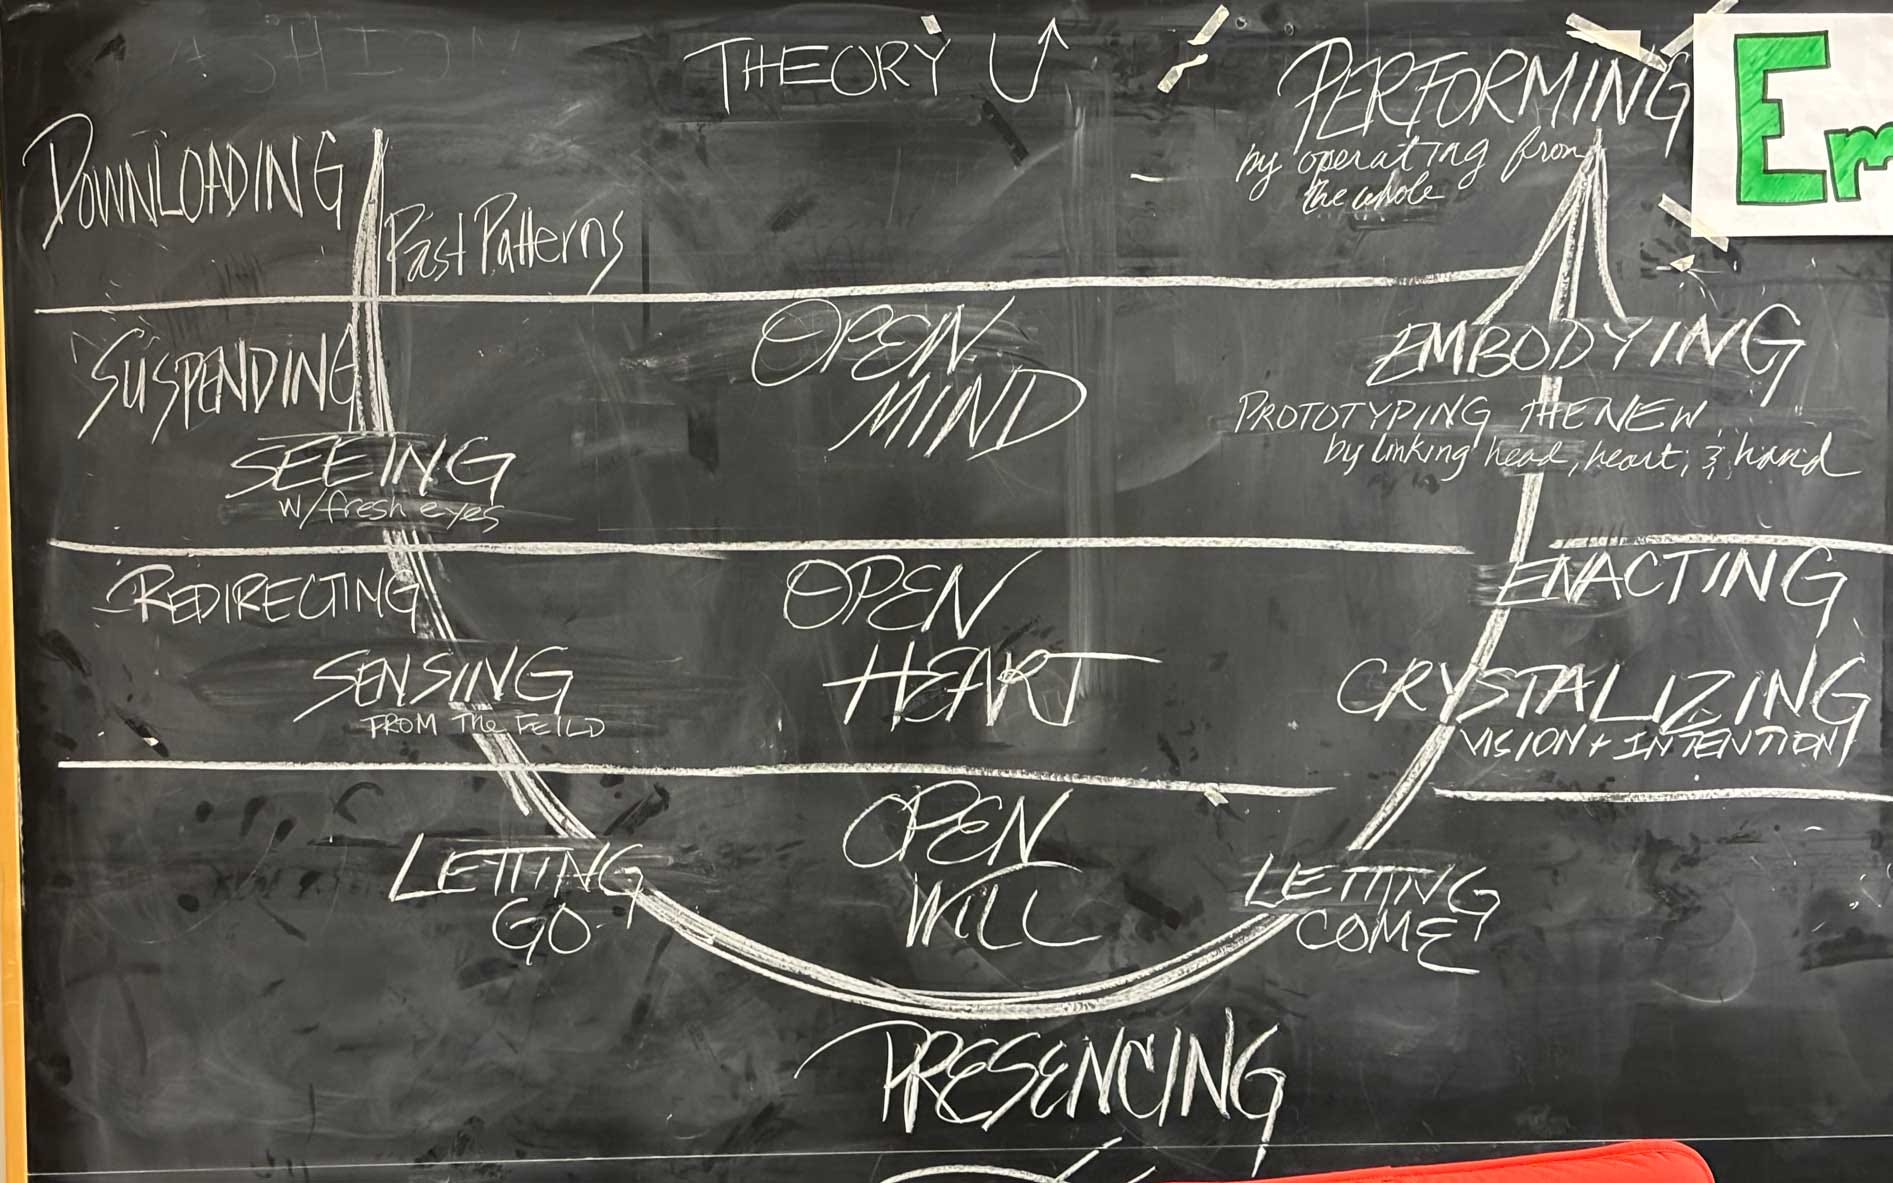 THEORY U
DOWNLOADING
Past Patterns
PERFORMING
by operating from
the whole
Em
SUSPENDING
OPEN
MIND
EMBODYING
PROTOTYPING THE NEW
by linking head, heart, & hand
SEEING
w/ fresh eyes
REDIRECTING
OPEN
HEART
ENACTING
SENSING
FROM THE FEILD
CRYSTALIZING
VISION + INTENTION
LETTING
GO
OPEN
WILL
LETTING
COME
PRESENCING